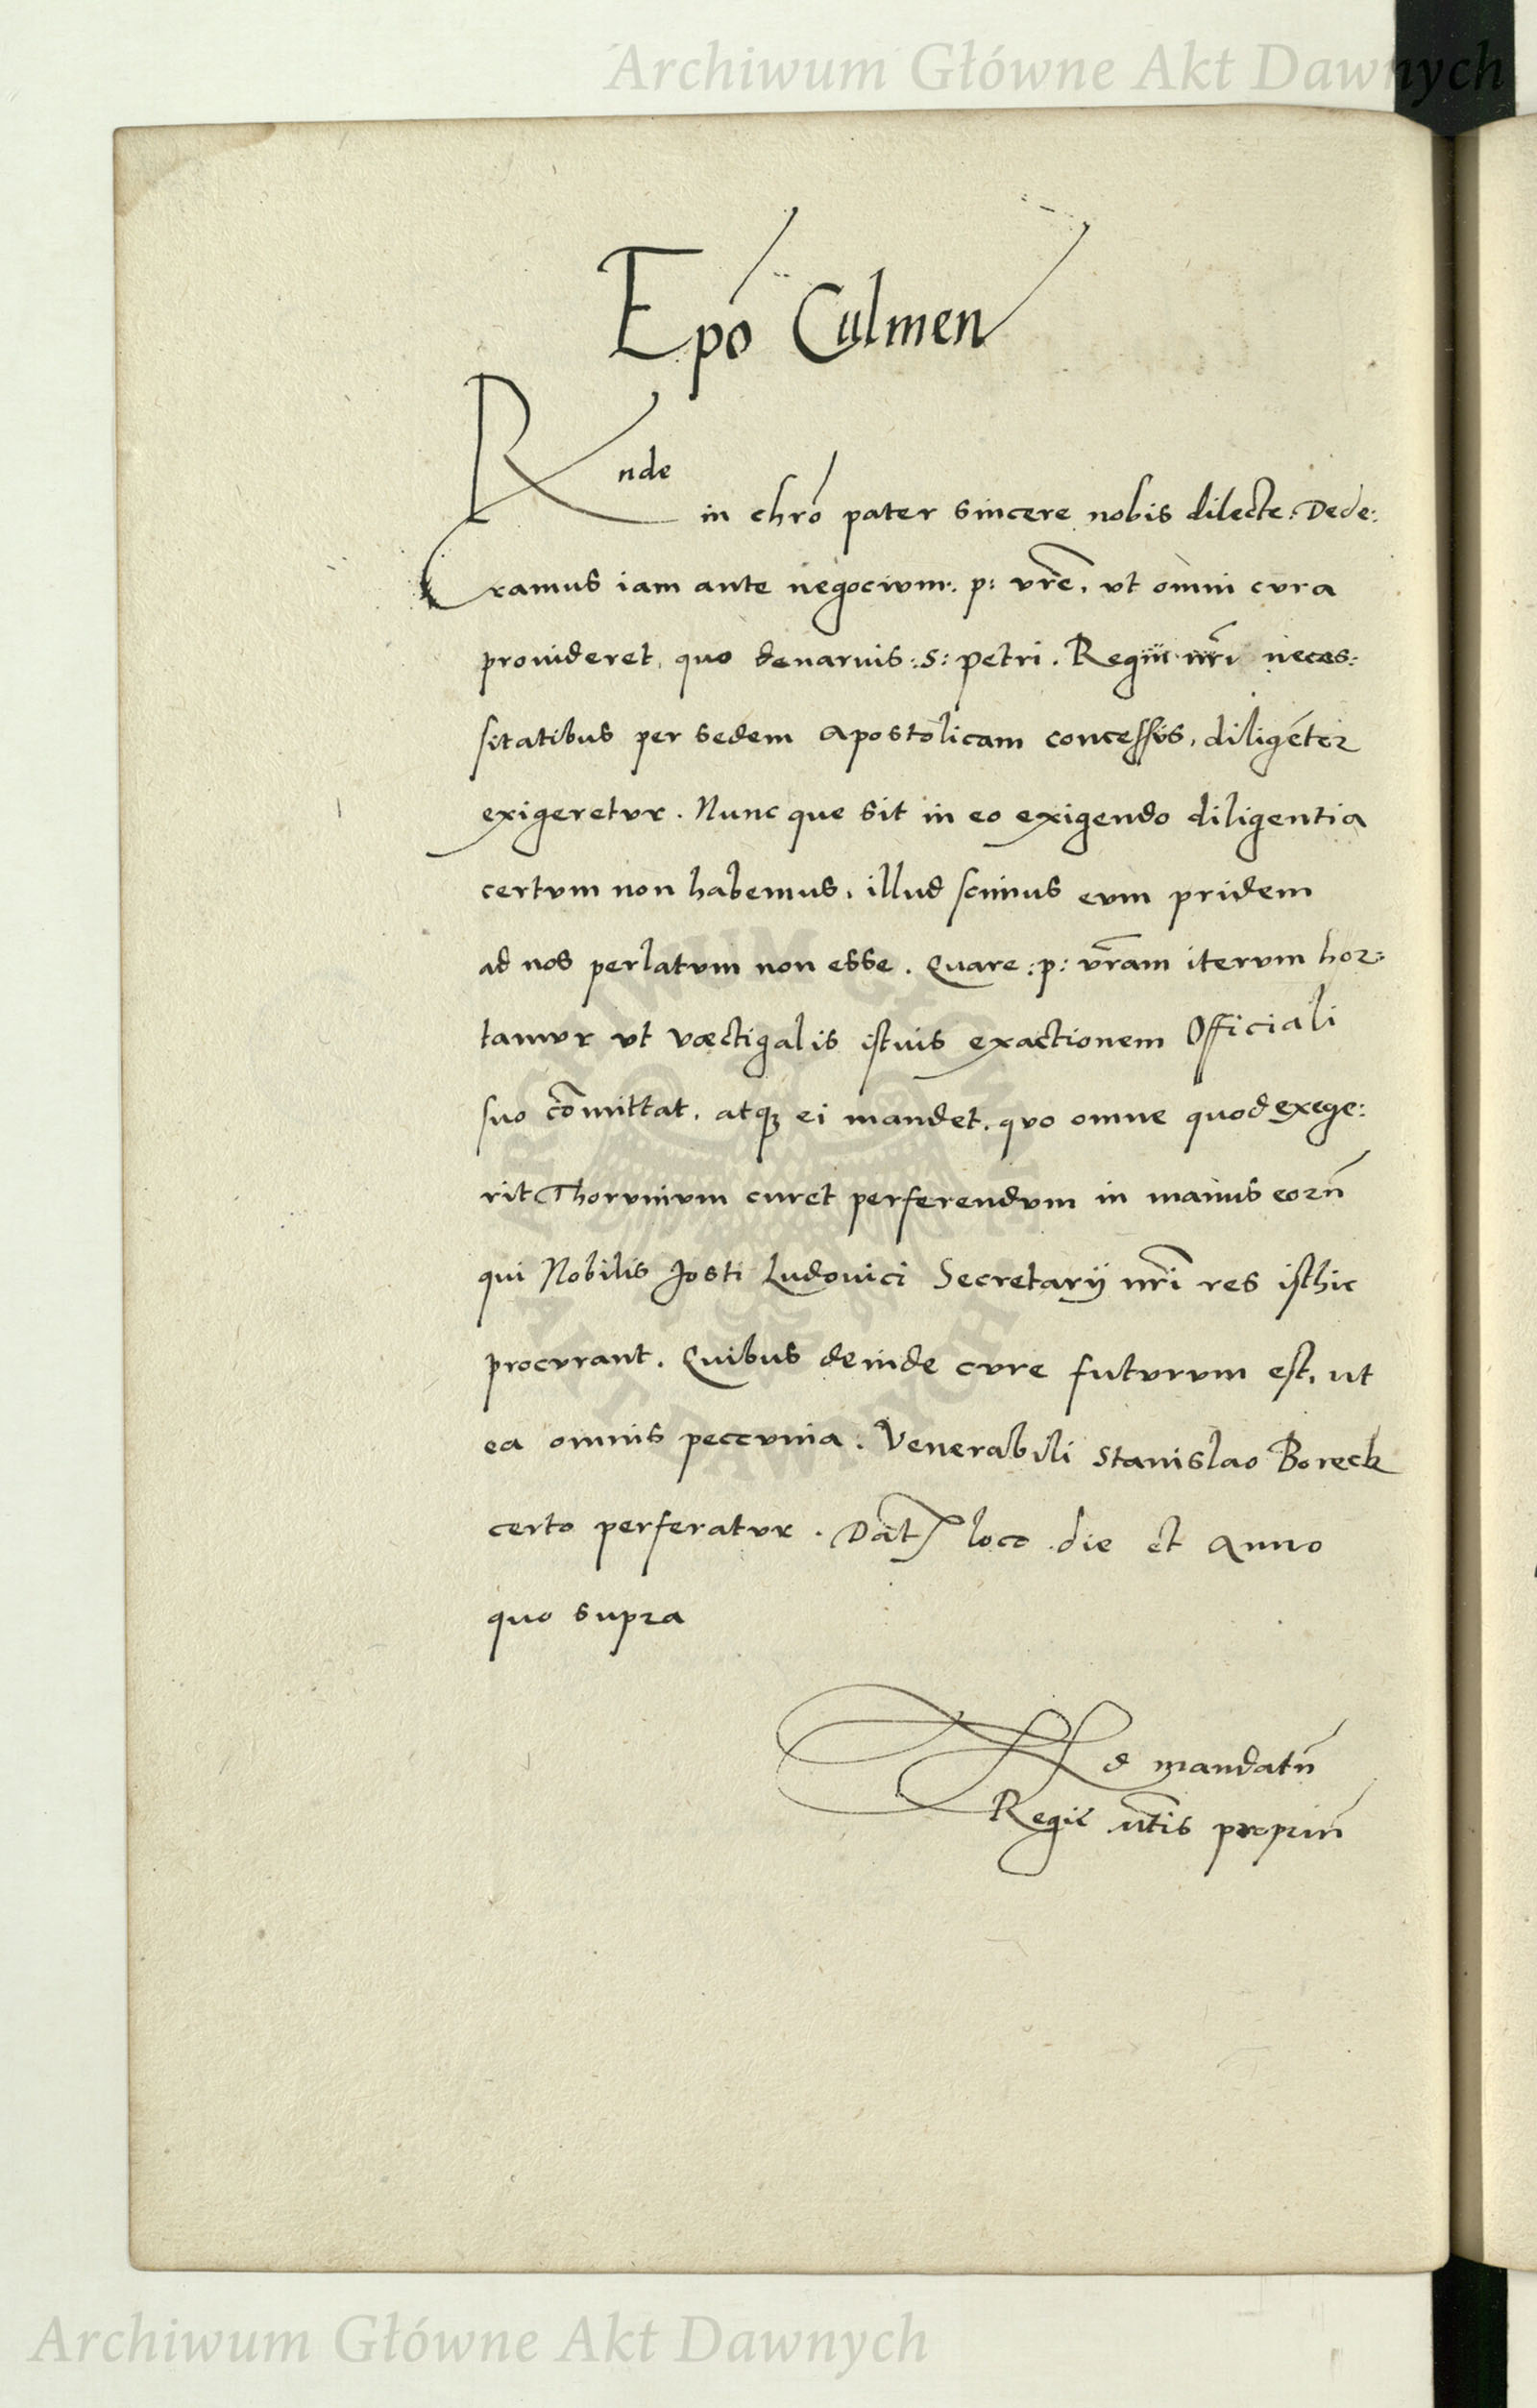 Archiwum Główne Akt Dawnych
Epo Culmen
Rnde
in chro pater sincere nobis dilecte. Dede:
ramus iam ante negocium .p: vre, vt omni cura
provideret, quo denariis :S: petri. Regni nri neces:
sitatibus per sedem apostolicam concessis, diligéter
exigeretur. Nunc que sit in eo exigendo diligentia
certum non habemus, illud scimus eum pridem
ad nos perlatum non esse. Quare :p: vram iterum hor:
tamur vt væctigalis istius exactionem Officiali
suo cōmittat, atq ei mandet, quo omne quod exege:
rit Thorunium curet perferendum in manus eorū
qui Nobilis Josti Ludovici Secretarij nri res isthic
procurant. Quibus deinde cure futurum est, ut
ea omnis peccunia. Venerabili Stanislao Boreck
certo perferatur. Dat loco die et Anno
quo supra
Ad mandatū
Regie mtis propriū
ARCHIWUM GŁÓWNE AKT DAWNYCH
Archiwum Główne Akt Dawnych